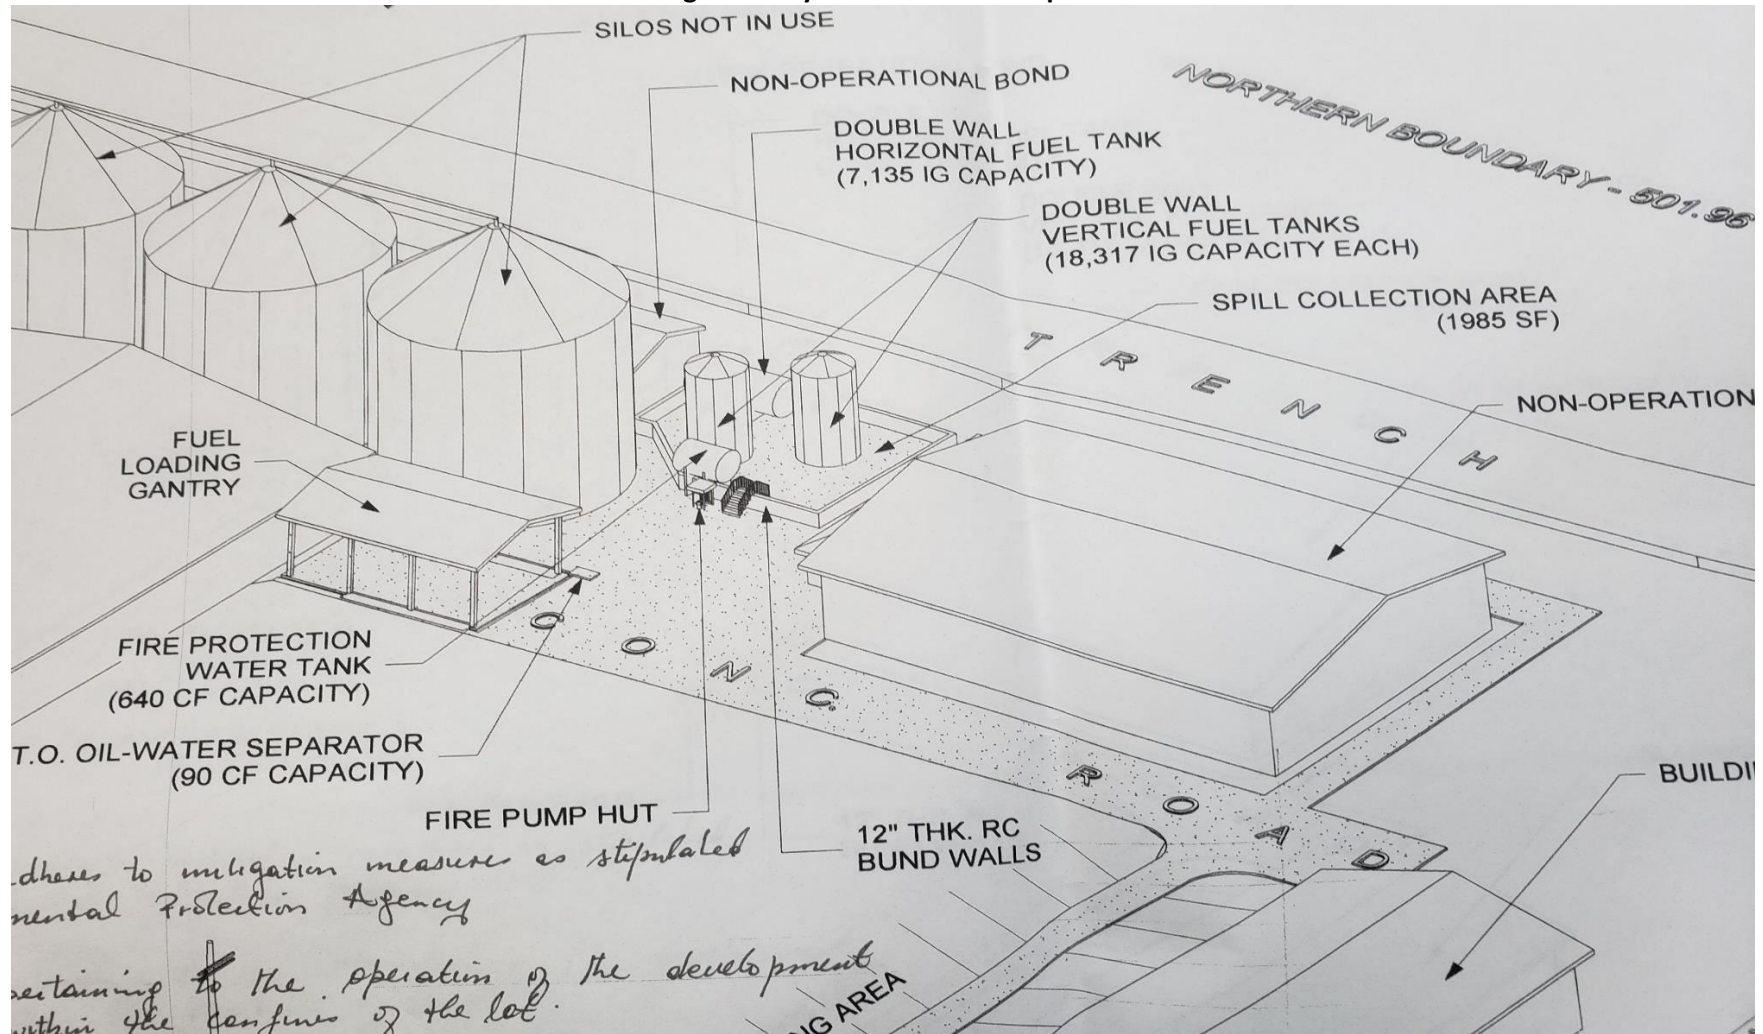 SILOS NOT IN USE
NON-OPERATIONAL BOND
DOUBLE WALL
HORIZONTAL FUEL TANK
(7,135 IG CAPACITY)
NORTHERN BOUNDARY - 501.96
DOUBLE WALL
VERTICAL FUEL TANKS
(18,317 IG CAPACITY EACH)
SPILL COLLECTION AREA
(1985 SF)
TRENCH
NON-OPERATION
FUEL
LOADING
GANTRY
FIRE PROTECTION
WATER TANK
(640 CF CAPACITY)
T.O. OIL-WATER SEPARATOR
(90 CF CAPACITY)
CONC. ROAD
FIRE PUMP HUT
12" THK. RC
BUND WALLS
BUILDI
dheres to mitigation measures as stipulated
mental Protection Agency
pertaining to the operation of the development
within the confines of the lot.
NG AREA